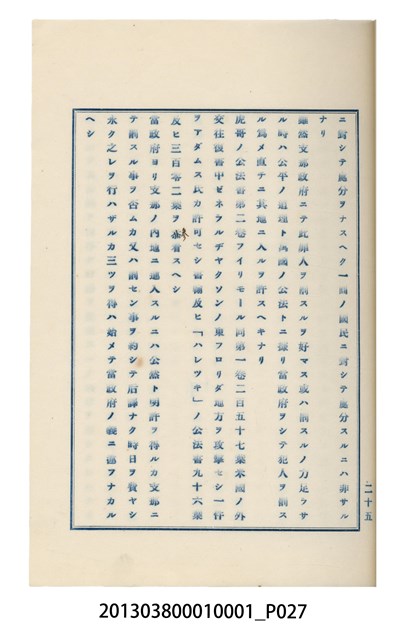 ニ對シテ處分ヲナスヘク一箇ノ國民ニ對シテ處分スルニハ非サル
ナリ
雖然支那政府ニテ此罪人ヲ罰スルヲ好マス或ハ罰スルノ力足ラサ
ル時ハ公平ノ道理ト萬國ノ公法トニ據リ當政府ヲシテ犯人ヲ罰ス
ル爲メ直チニ其地ニ入ルヲ許スヘキナリ
虎哥ノ公法書第二卷フイリモール同第一卷二百五十七葉米國ノ外
交往復書中ゼネラルヂヤクソンノ東フロリダ地方ヲ攻撃セシ一件
ヲアダムス氏カ許可セシ書翰及ヒ「ハレツキ」ノ公法書九十六葉
及ヒ三百零二葉ヲ參看スヘシ
當政府ヨリ支那ノ內地ニ進入スルニハ公然ト明許ヲ得ルカ支那ニ
テ罰スル事ヲ否ムカ又ハ罰セン事ヲ約シテ后謂ナク時日ヲ費ヤシ
永ク之レヲ行ハザルカ三ツヲ得ハ始メテ當政府ノ義ニ當フナカル
ヘシ
二十五
201303800010001_P027